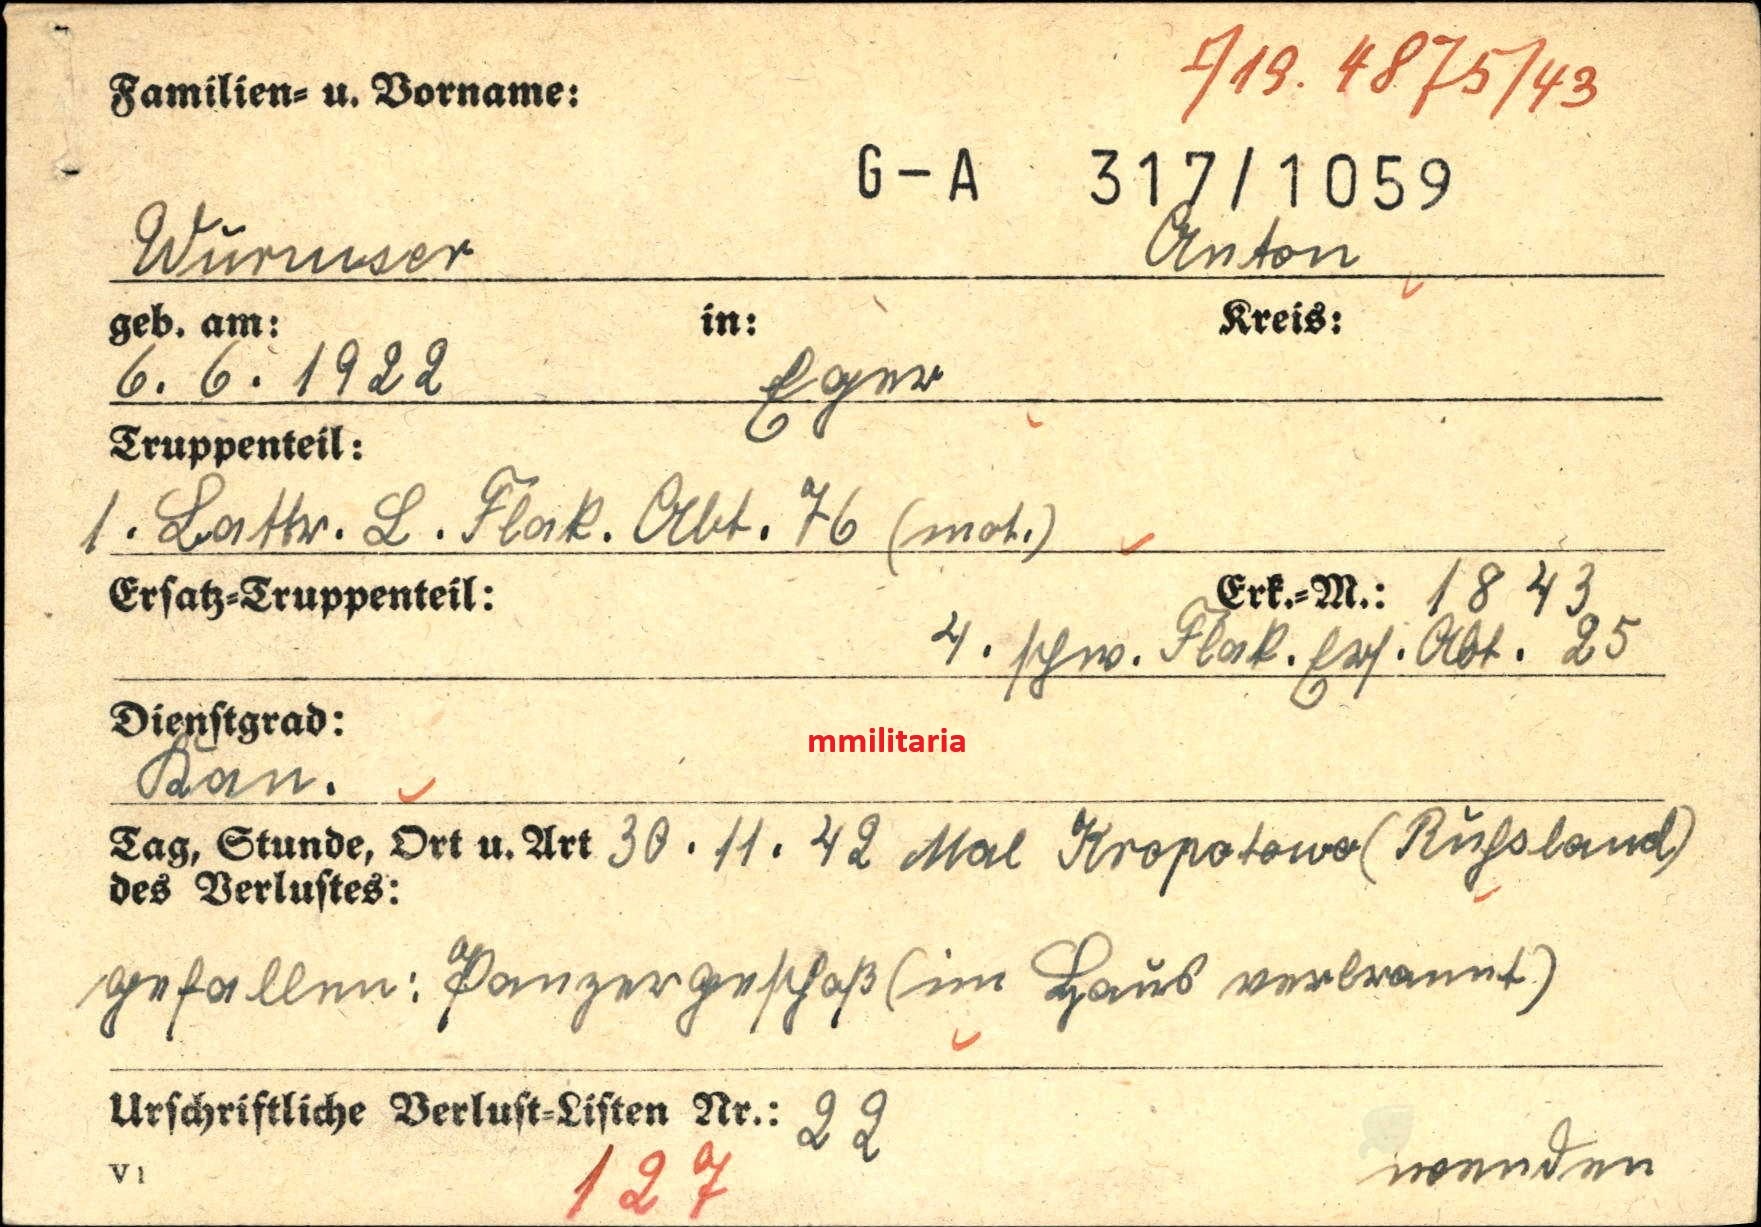 I/19. 4875/43
Familien- u. Vorname:
G-A 317/1059
Wurmser Anton
geb. am: in: Kreis:
6. 6. 1922 Eger
Truppenteil:
1. Battr. L. Flak. Abt. 76 (mot.)
Ersatz-Truppenteil: Erk.-M.: 1843
4. schw. Flak. Ers. Abt. 25
Dienstgrad:
mmilitaria
Kan.
Tag, Stunde, Ort u. Art 30. 11. 42 Mal Kropotowo (Rußland)
des Verlustes:
gefallen: Panzergeschoß (im Haus verbrannt)
Urschriftliche Verlust-Listen Nr.: 22
V 1 127 wenden